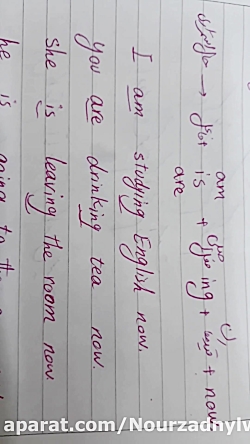 فاعل + am
is
are + ing + + now
I am studying English now.
You are drinking tea now.
She is leaving the room now.
he is going to the
aparat.com/Nourzadnyiv